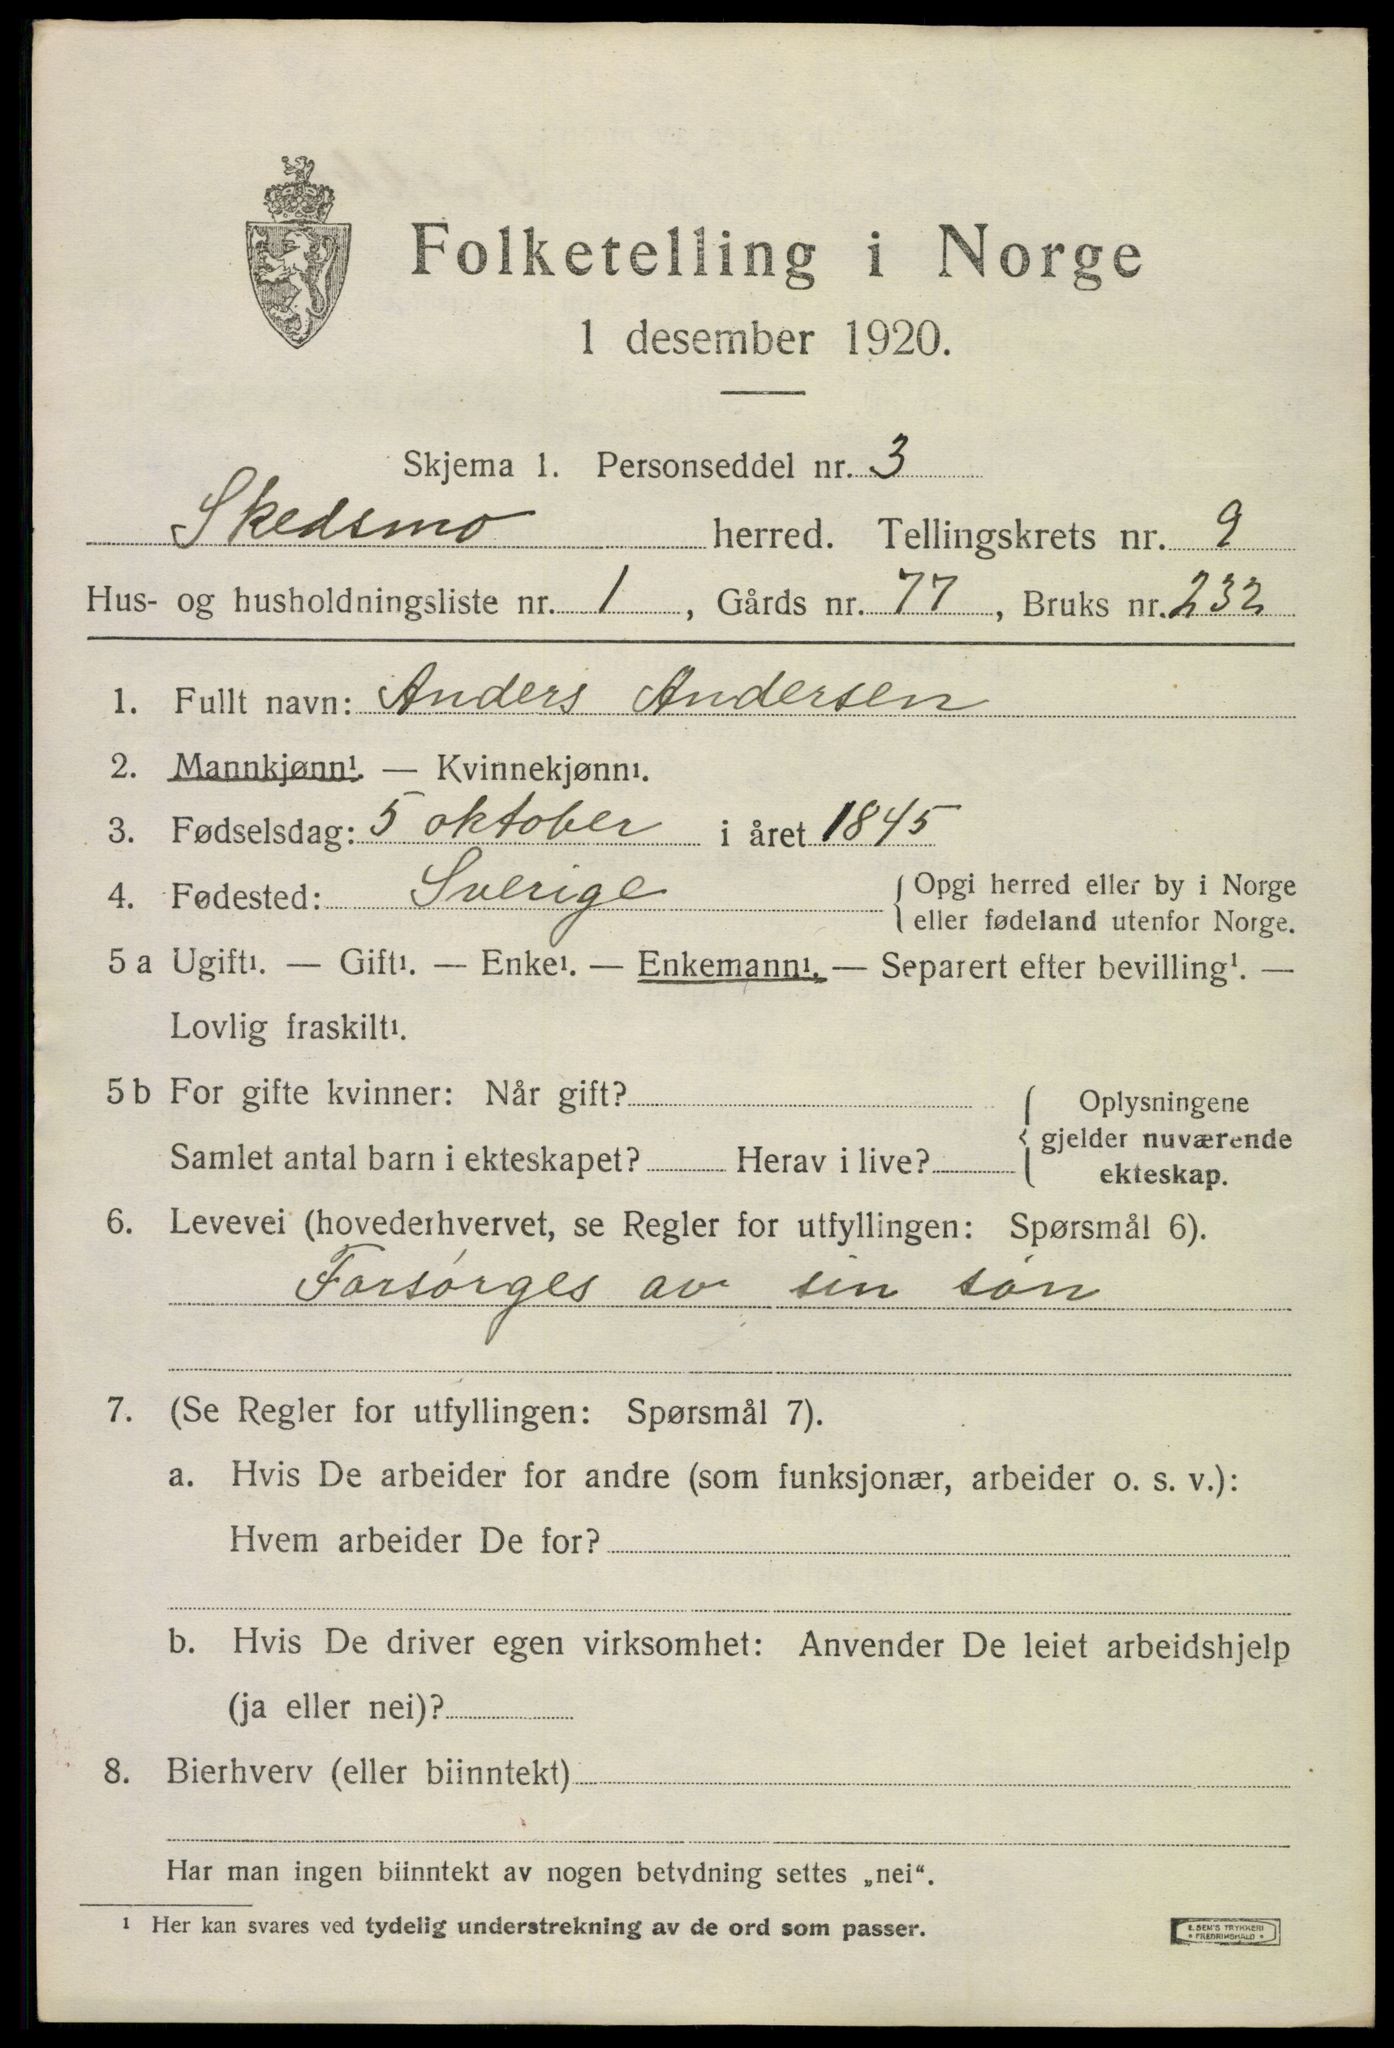 Folketelling i Norge
1 desember 1920.
Skjema 1. Personseddel nr. 3
Skedsmo herred. Tellingskrets nr. 9
Hus- og husholdningsliste nr. 1, Gårds nr. 77, Bruks nr. 232
1. Fullt navn: Anders Andersen
2. Mannkjønn¹. — Kvinnekjønn¹.
3. Fødselsdag: 5 oktober i året 1845
4. Fødested: Sverige { Opgi herred eller by i Norge
eller fødeland utenfor Norge.
5 a Ugift¹. — Gift¹. — Enke¹. — Enkemann¹. — Separert efter bevilling¹. —
Lovlig fraskilt¹.
5 b For gifte kvinner: Når gift?
Samlet antal barn i ekteskapet? Herav i live?
{ Oplysningene
gjelder nuværende
ekteskap.
6. Levevei (hovederhvervet, se Regler for utfyllingen: Spørsmål 6).
Forsørges av sin søn
7. (Se Regler for utfyllingen: Spørsmål 7).
a. Hvis De arbeider for andre (som funksjonær, arbeider o. s. v.):
Hvem arbeider De for?
b. Hvis De driver egen virksomhet: Anvender De leiet arbeidshjelp
(ja eller nei)?
8. Bierhverv (eller biinntekt)
Har man ingen biinntekt av nogen betydning settes „nei“.
¹ Her kan svares ved tydelig understrekning av de ord som passer.
E. SEM'S TRYKKERI
• FREDRIKSHALD •